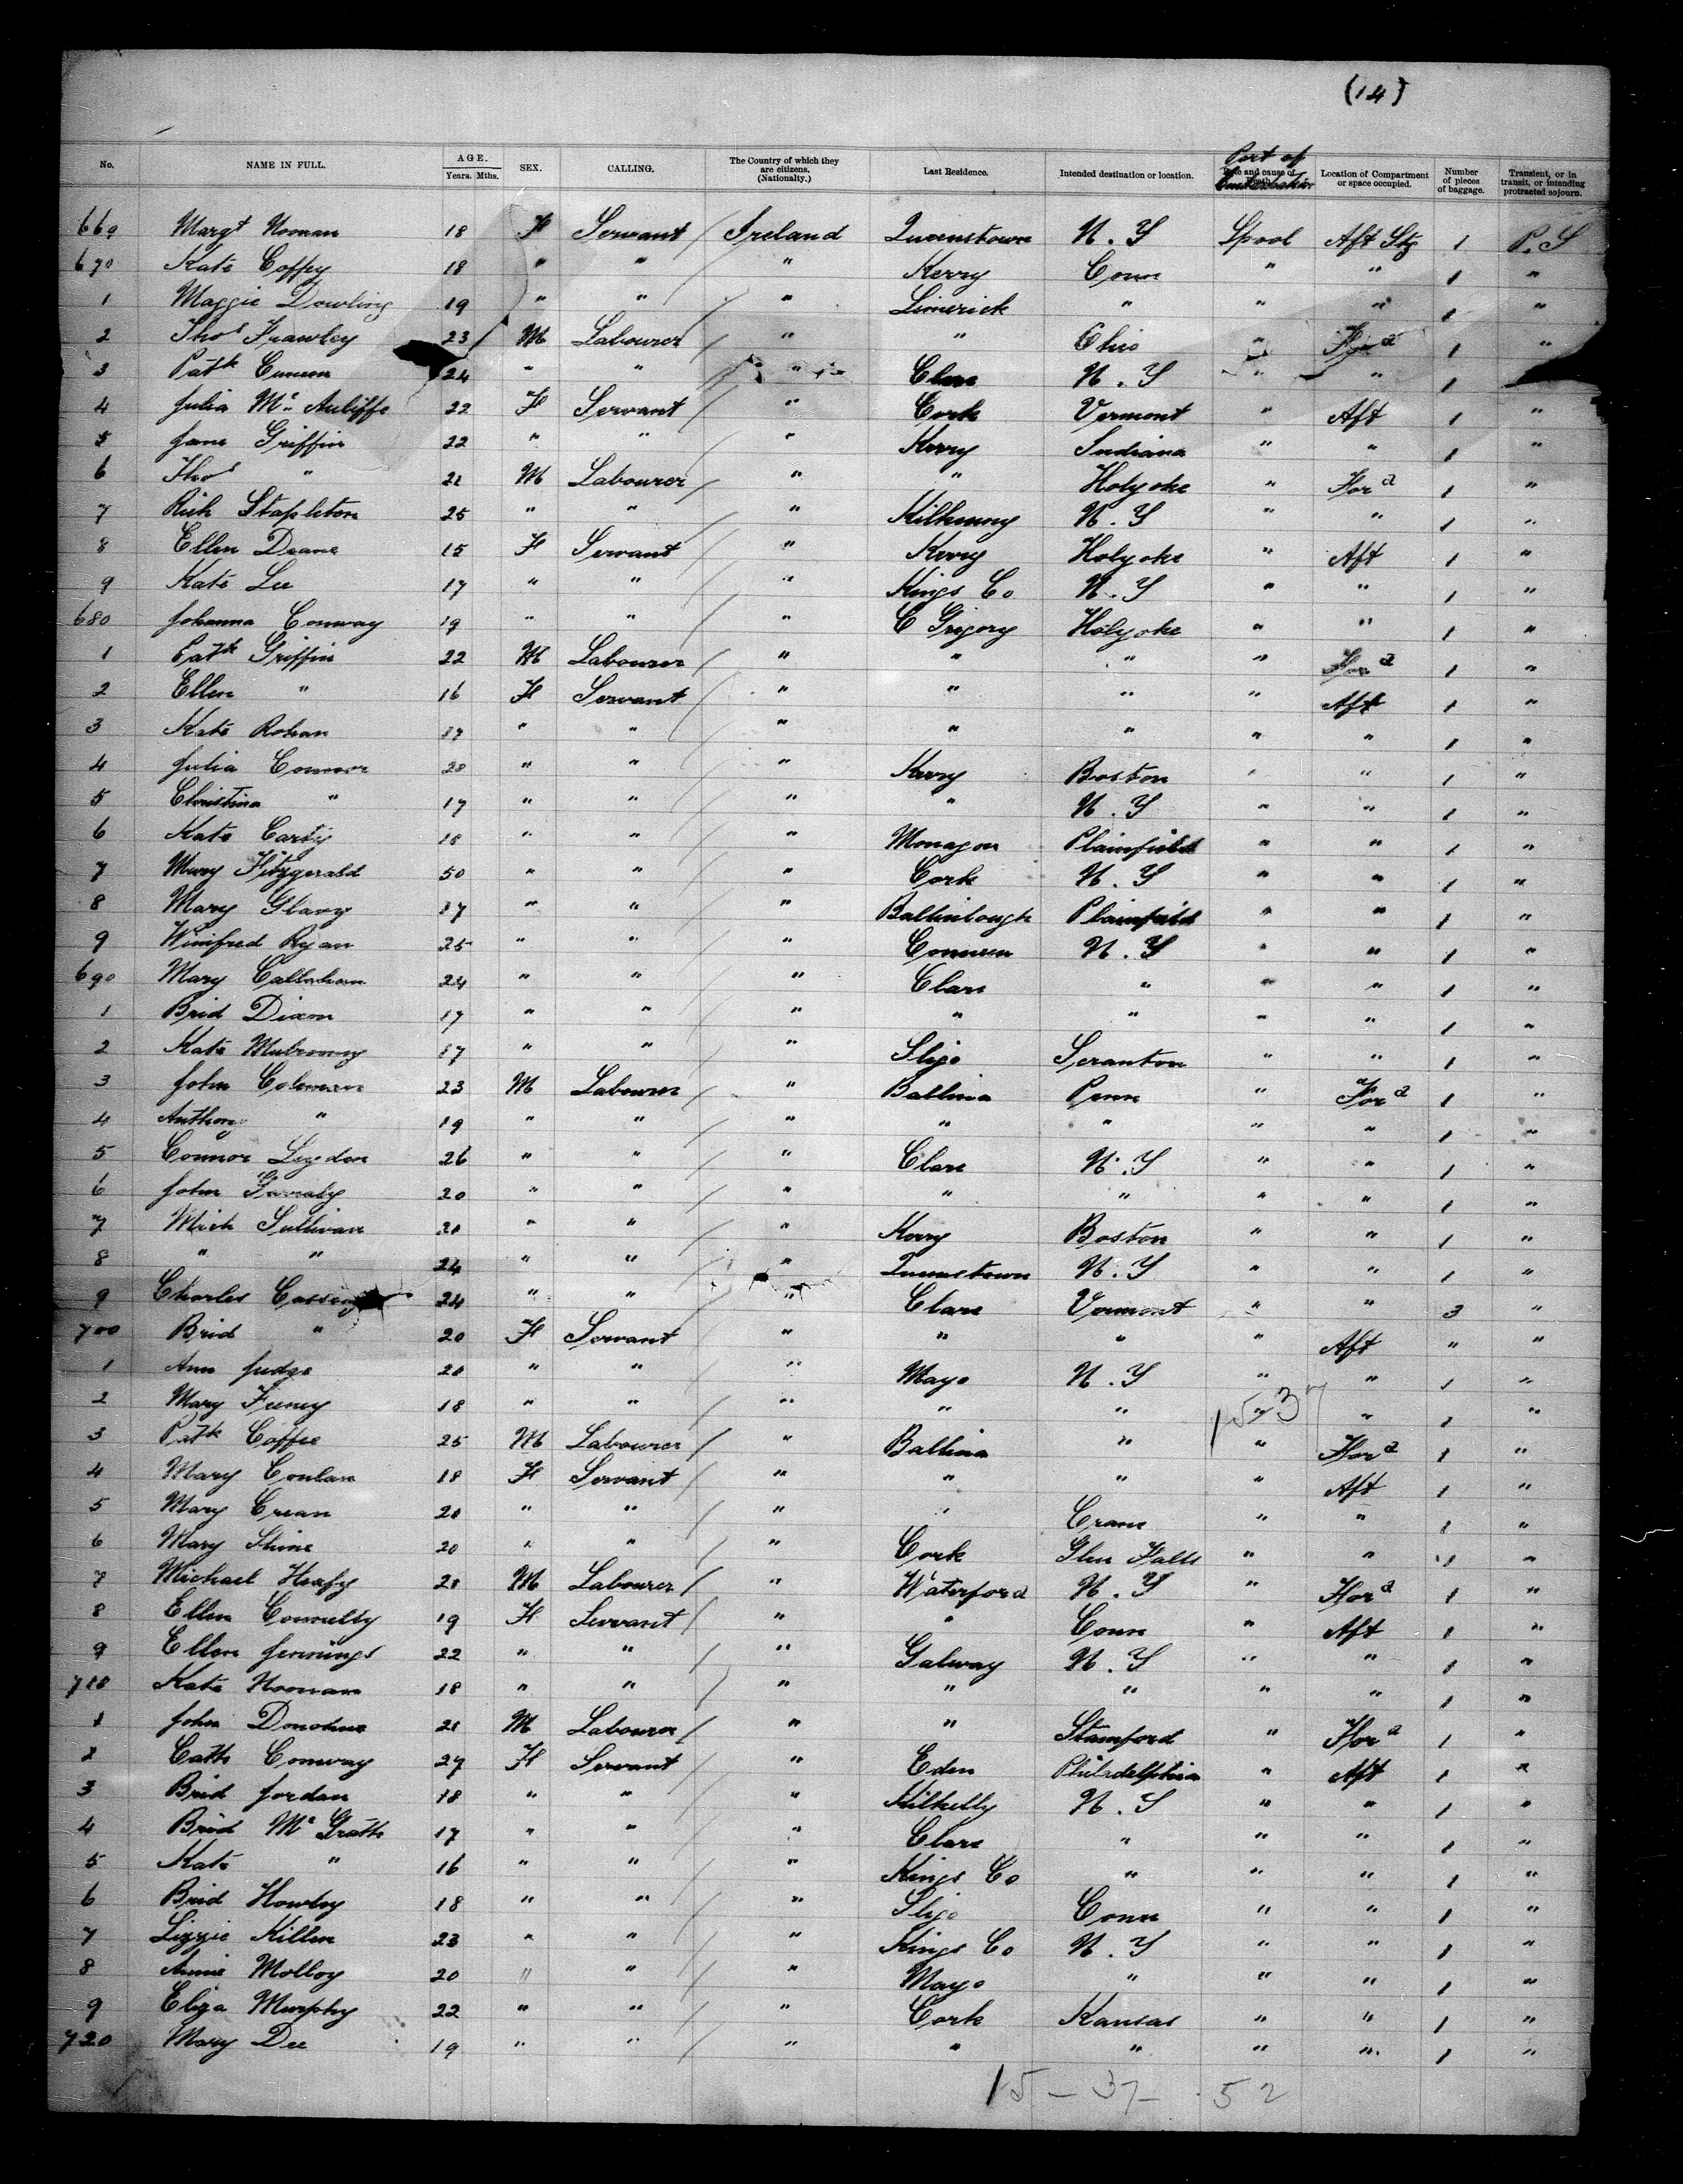 (14)
Port of
No. NAME IN FULL. AGE. Years. Mths. SEX. CALLING. The Country of which they are citizens. (Nationalty.) Last Residence. Intended destination or location. Date and cause of Death. Embarkation Location of Compartment or space occupied. Number of pieces of baggage. Transient, or in transit, or intending protracted sojourn.
669 Margt Noonan 18 F Servant Ireland Queenstown N.Y Lpool Aft Stg 1 P.S
670 Kate Coffey 18 " " " Kerry Conn " " 1 "
1 Maggie Dowling 19 " " " Limerick " " " 1 "
2 Thos Frawley 23 M Labourer " " Ohio " Ford 1 "
3 Patk 24 " " " Clare N.Y " " 1
4 Julia Mc Auliffe 22 F Servant " Cork Vermont " Aft 1 "
5 Jane Griffin 22 " " " Kerry Indiana " " 1 "
6 Thos " 21 M Labourer " " Holyoke " Ford 1 "
7 Rich Stapleton 25 " " " Kilkenny N.Y " " 1 "
8 Ellen Deane 15 F Servant " Kerry Holyoke " Aft 1 "
9 Kate Lee 17 " " " Kings Co N.Y " " 1 "
680 Johanna Conway 19 " " " C Gregory Holyoke " " 1 "
1 Patk Griffin 22 M Labourer " " " " Ford 1 "
2 Ellen " 16 F Servant " " " " Aft 1 "
3 Kate Rohan 17 " " " " " " " 1 "
4 Julia Connor 28 " " " Kerry Boston " " 1 "
5 Christina " 17 " " " " N.Y " " 1 "
6 Kate Carty 18 " " " Monagon Plainfield " " 1 "
7 Mary Fitzgerald 50 " " " Cork N.Y " " 1 "
8 Mary Glavy 17 " " " Ballinlough Plainfield " " 1 "
9 Winifred Ryan 25 " " " N.Y " " 1 "
690 Mary Callahan 24 " " " Clare " " " 1 "
1 Brid Dixon 17 " " " " " " " 1 "
2 Kate Mulrooney 17 " " " Sligo Scranton " " 1 "
3 John Coleman 23 M Labourer " Ballina Penn " Ford 1 "
4 Anthony " 19 " " " " " " " 1 "
5 Connor 26 " " " Clare N.Y " " 1 "
6 John Garrahy 20 " " " " " " " 1 "
7 Mich Sullivan 20 " " " Kerry Boston " " 1 "
8 " " 24 " " " Queenstown N.Y " " 1 "
9 Charles 24 " " " Clare Vermont " " 3 "
700 Brid " 20 F Servant " " " " Aft " "
1 Ann Judge 20 " " " Mayo N.Y " " 1 "
2 Mary Feeney 18 " " " " " " " 1 "
15 37
3 Patk Coffee 25 M Labourer " Ballina " " Ford 1 "
4 Mary Conlan 18 F Servant " " " " Aft 1 "
5 Mary Crean 20 " " " " Crane " " 1 "
6 Mary Shine 20 " " " Cork Glen Falls " " 1 "
7 Michael Heafy 28 M Labourer " Waterford N.Y " Ford 1 "
8 Ellen Connelly 19 F Servant " " Conn " Aft 1 "
9 Ellen Jennings 22 " " " Galway N.Y " " 1 "
710 Kate Noonan 18 " " " " " " " 1 "
1 John Donohue 21 M Labourer " " Stamford " Ford 1 "
2 Cath Conway 27 F Servant " Eden Philadelphia " Aft 1 "
3 Brid Jordan 18 " " " Kilkelly N.Y " " 1 "
4 Brid Mc Grath 17 " " " Clare " " " 1 "
5 Kate " 16 " " " Kings Co " " " 1 "
6 Brid Howley 18 " " " Sligo Conn " " 1 "
7 Lizzie Killen 23 " " " Kings Co N.Y " " 1 "
8 Annie Molloy 20 " " " Mayo " " " 1 "
9 Eliza Murphy 22 " " " Cork Kansas " " 1 "
720 Mary Dee 19 " " " " " " " 1 "
15 - 37 - 52